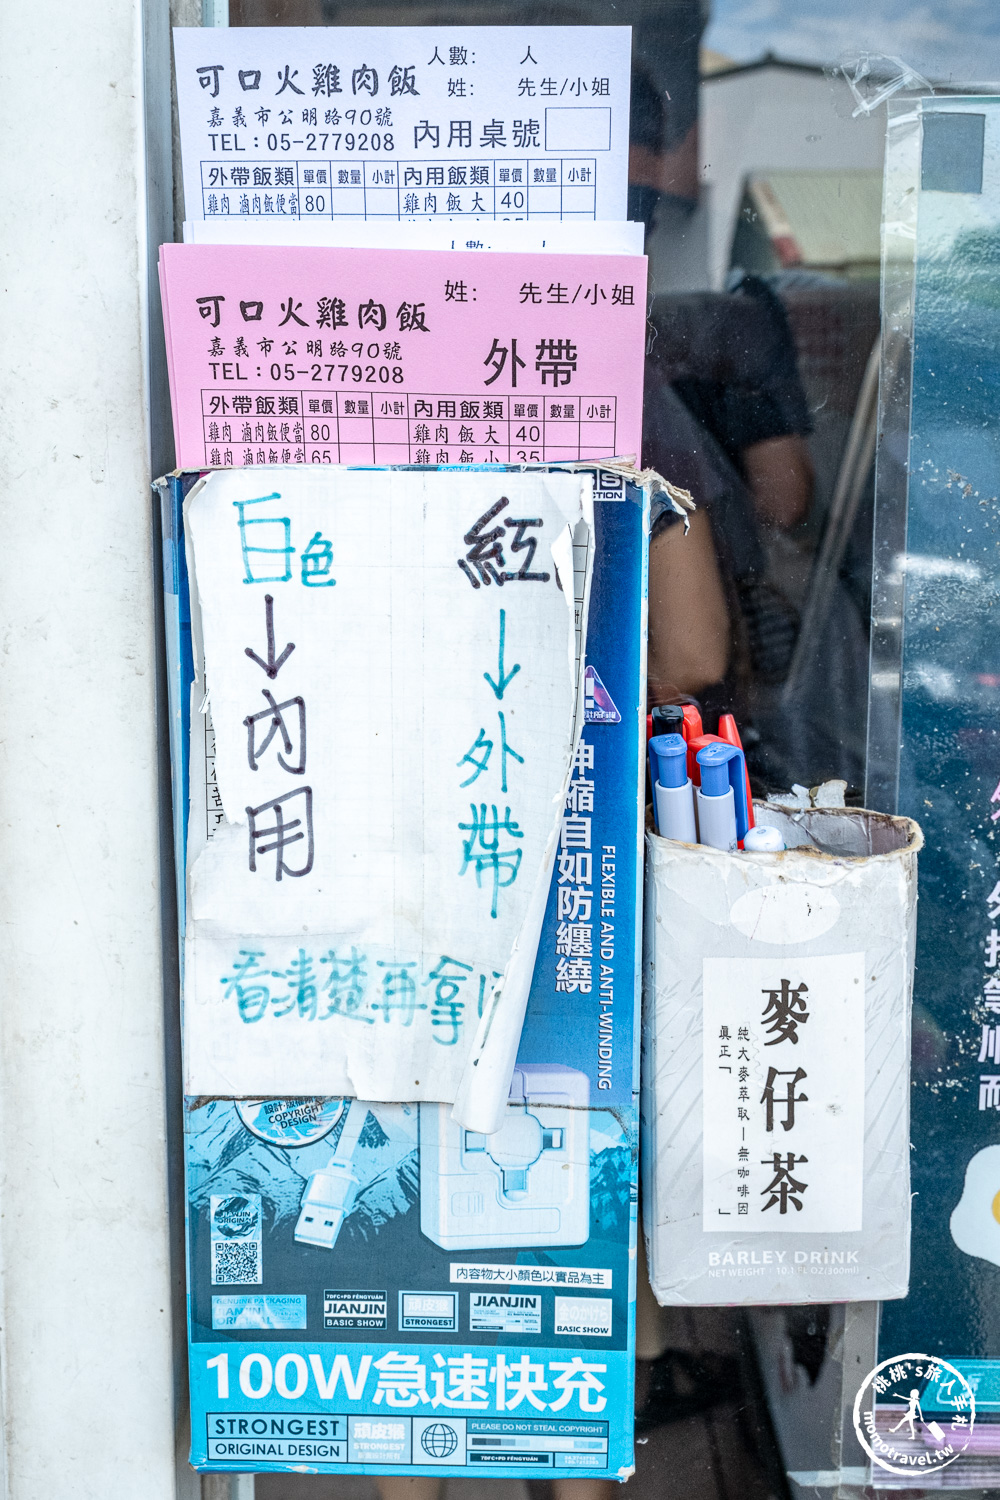 人數: 人
可口火雞肉飯 姓: 先生/小姐
嘉義市公明路90號
TEL:05-2779208 內用桌號
外帶飯類 單價 數量 小計 內用飯類 單價 數量 小計
雞肉 滷肉飯便當 80 雞肉飯大 40
人數: 人
姓: 先生/小姐
可口火雞肉飯
嘉義市公明路90號
TEL:05-2779208 外帶
外帶飯類 單價 數量 小計 內用飯類 單價 數量 小計
雞肉 滷肉飯便當 80 雞肉飯大 40
雞肉 滷肉飯便當 65 雞肉飯小 35
白色→內用
紅→外帶
看清楚再拿
伸縮自如防纏繞
FLEXIBLE AND ANTI-WINDING
設計·版權所
COPYRIGHT
DESIGN
JIANJIN
ORIGINAL
內容物大小顏色以實品為主
GENUINE PACKAGING
JIANJIN
ORIGINAL
7DFC+PD FĒNGYUÁN
JIANJIN
BASIC SHOW
頑皮猴
STRONGEST
JIANJIN
BASIC SHOW
100W急速快充
STRONGEST
ORIGINAL DESIGN
頑皮猴
STRONGEST
PLEASE DO NOT STEAL COPYRIGHT
7DFC+PD FĒNGYUÁN
麥仔茶
純大麥萃取—無咖啡因
真正「 」
BARLEY DRINK
NET WEIGHT : 10.1 FL OZ(300ml)
桃桃's旅人手札
momotravel.tw